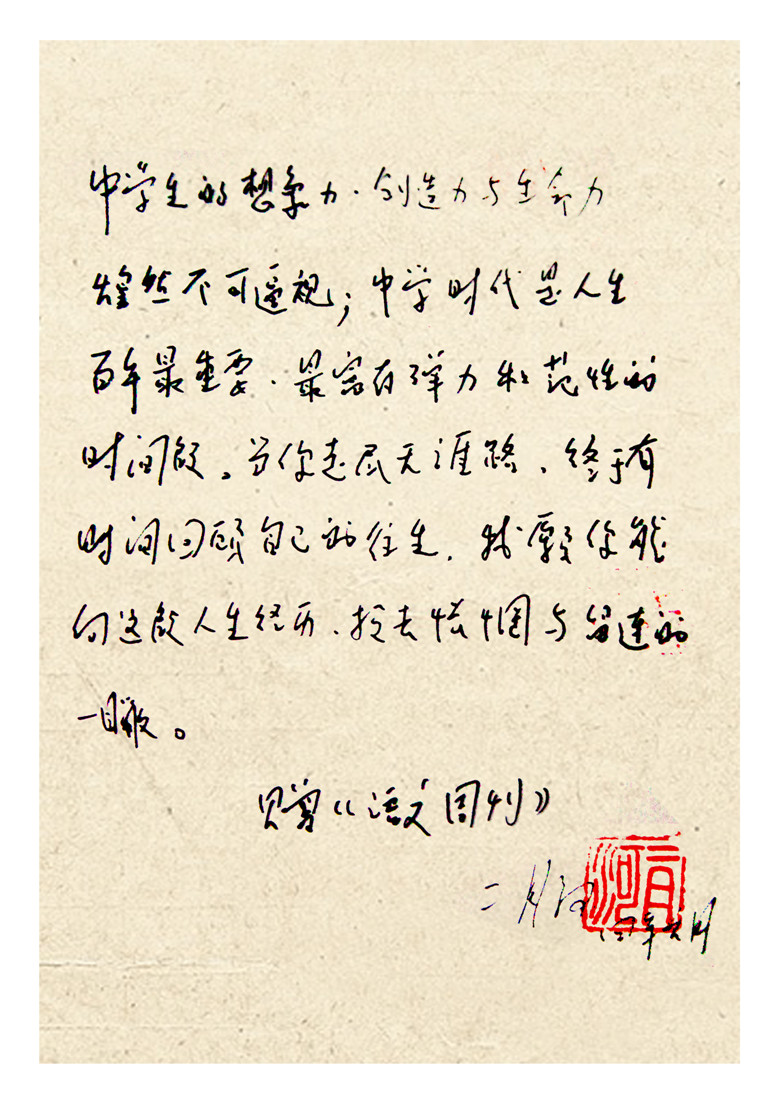 中学生的想象力、创造力与生命力
煌然不可逼视；中学时代是人生
百年最重要、最富有弹力和范性的
时间段。当你走尽天涯路、终于有
时间回顾自己的往生，我愿你能
向这段人生经历、投去怅惘与留连的
一瞥。
赠《语文周刊》
二月河
二月河
年六月